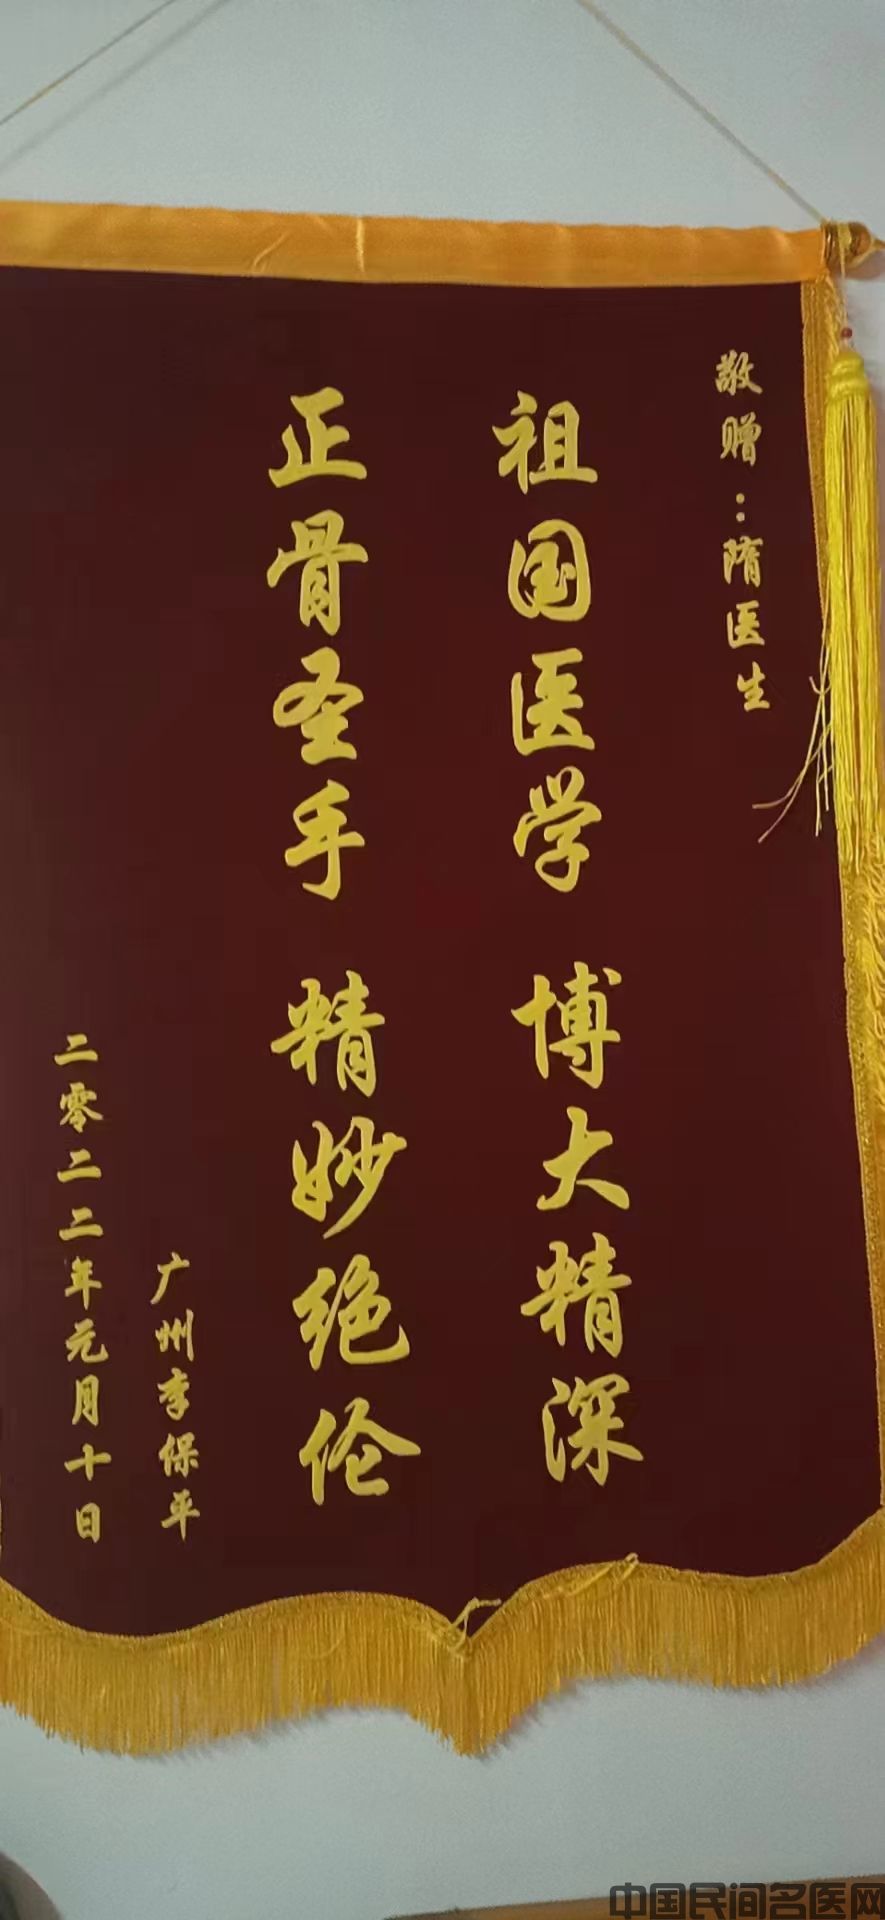 敬赠：隋医生
祖国医学 博大精深
正骨圣手 精妙绝伦
广州李保平
二零二二年元月十日
中国民间名医网